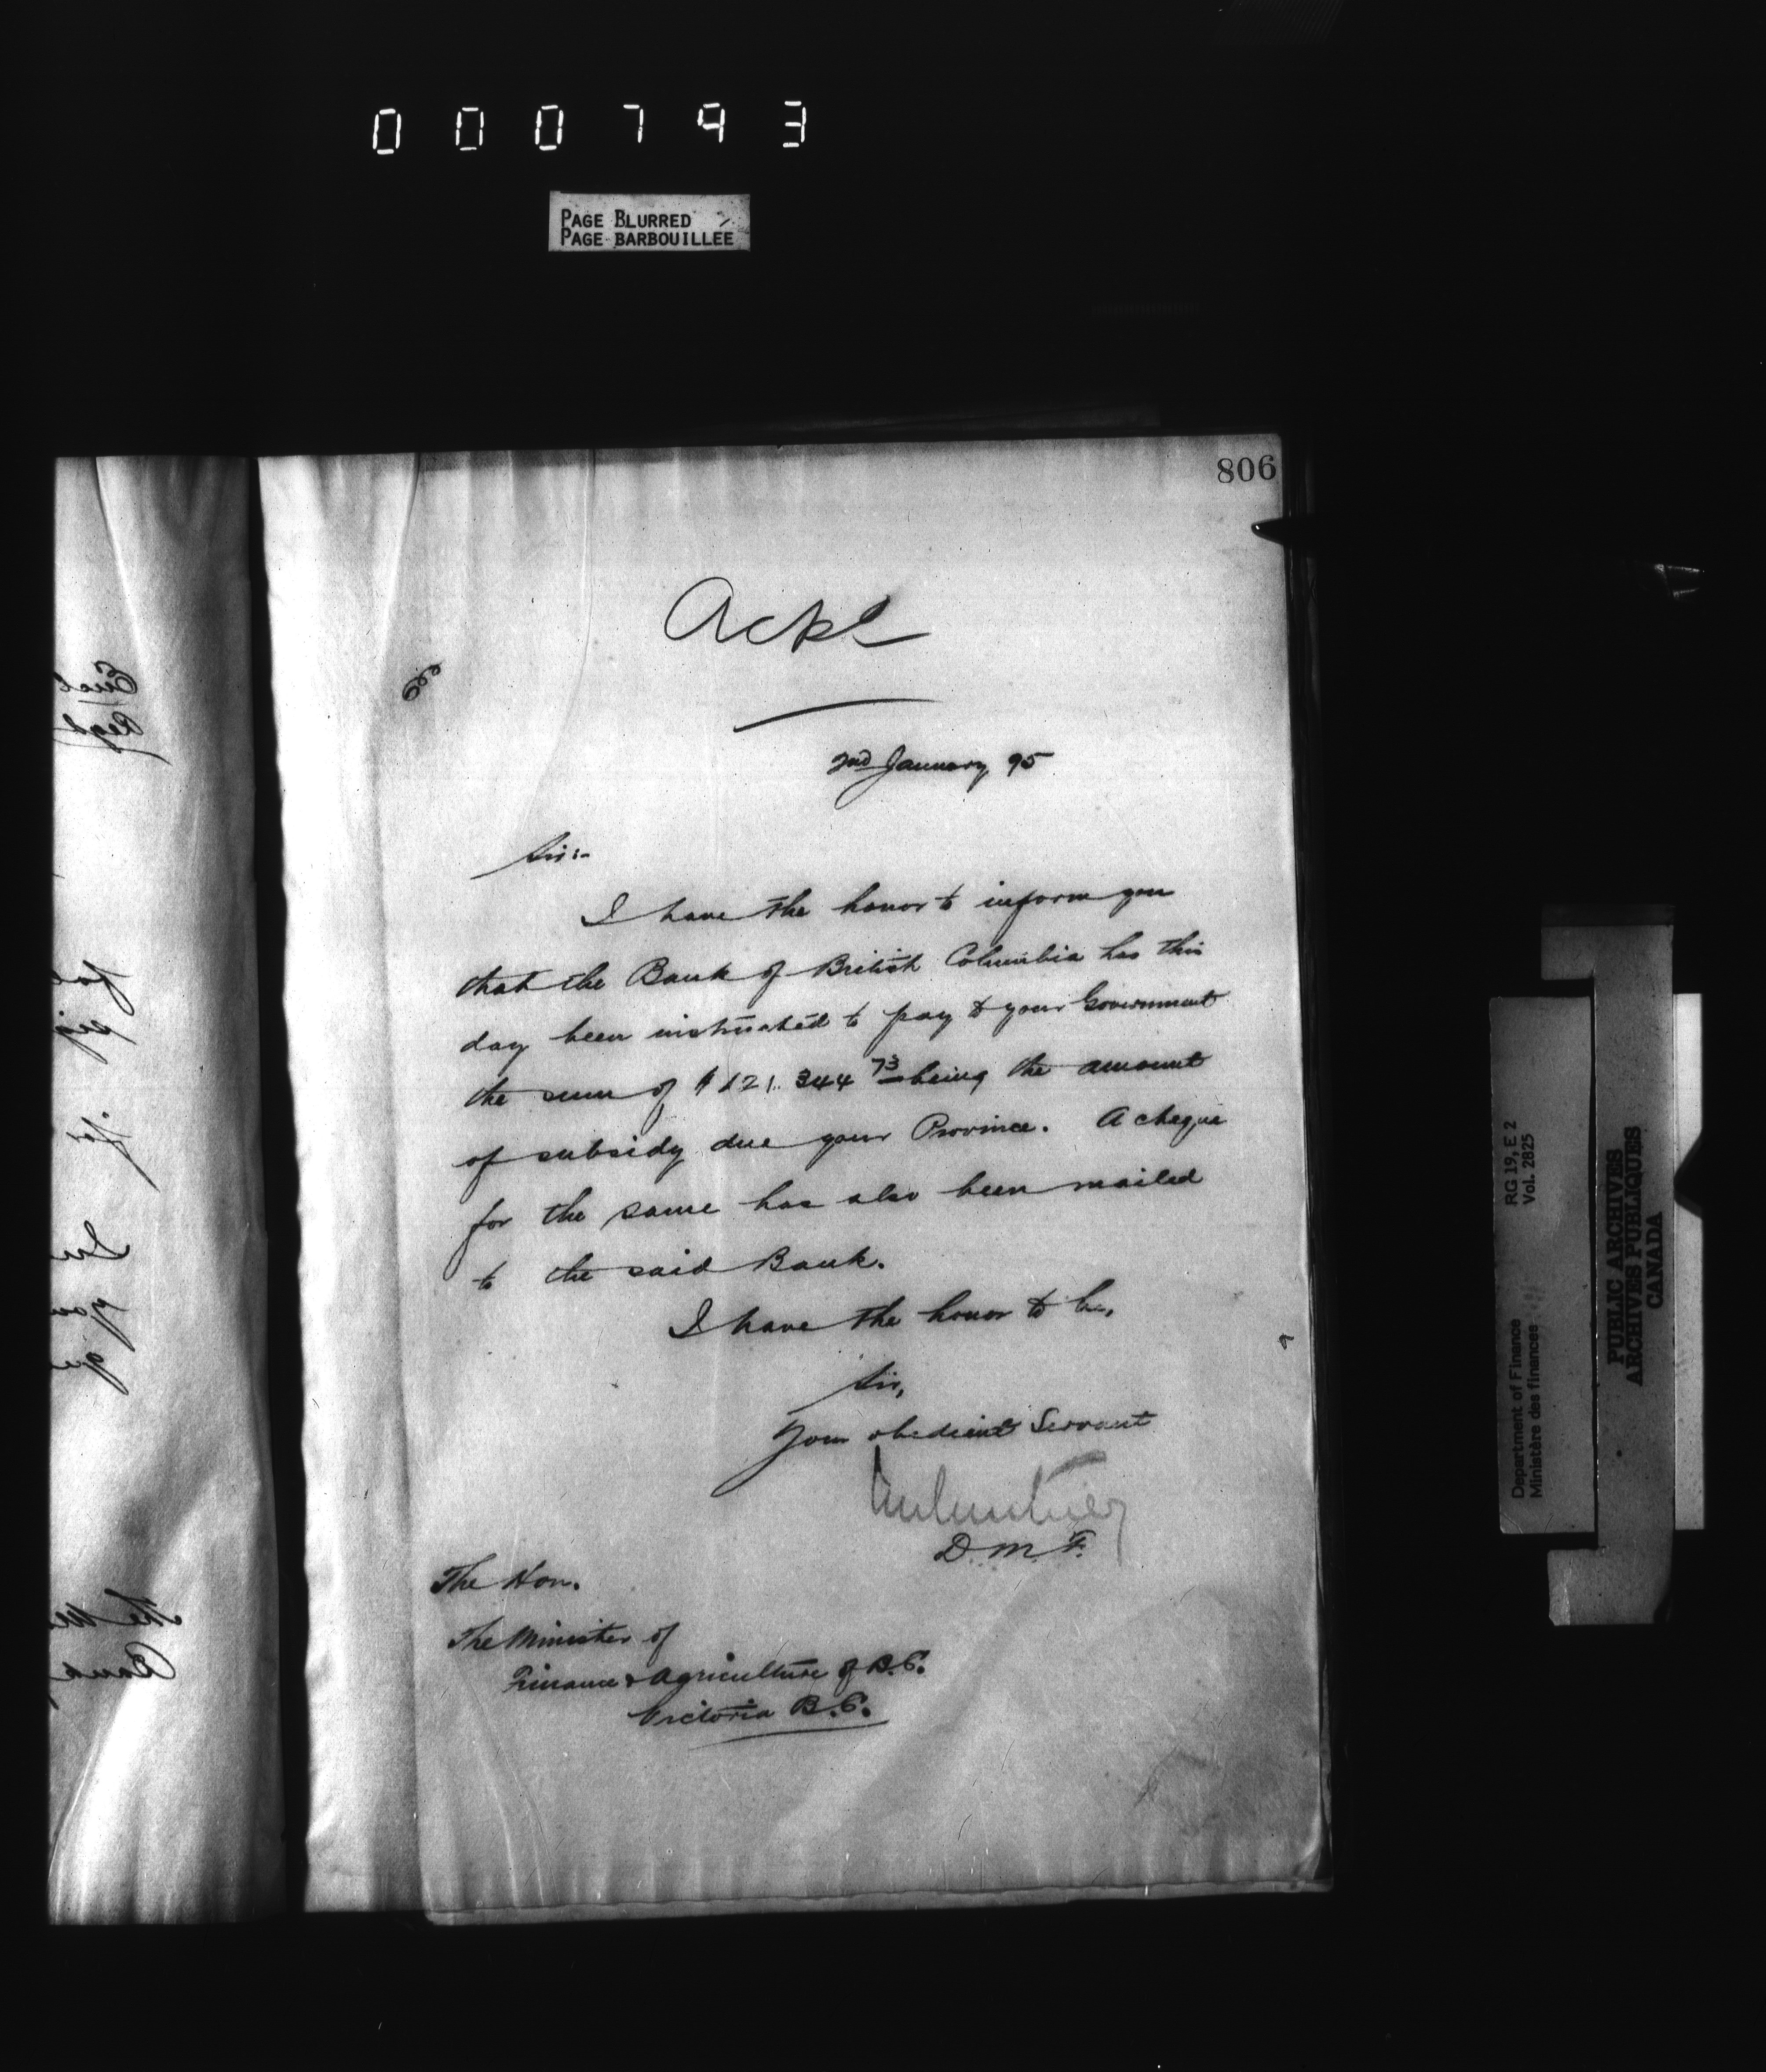 000793
PAGE BLURRED
PAGE BARBOUILLÉE
806
Ackd
2nd January 95
Sir:-
I have the honor to inform you
that the Bank of British Columbia has this
day been instructed to pay to your Government
the sum of $121.344 73 being the amount
of subsidy due your Province. A cheque
for the same has also been mailed
to the said Bank.
I have the honor to be,
Sir,
Your obedient Servant
D.M.F.
The Hon.
The Minister of
Finance & Agriculture of B.C.
Victoria B.C.
RG 19, E 2
Vol. 2825
Department of Finance
Ministère des finances
PUBLIC ARCHIVES
ARCHIVES PUBLIQUES
CANADA